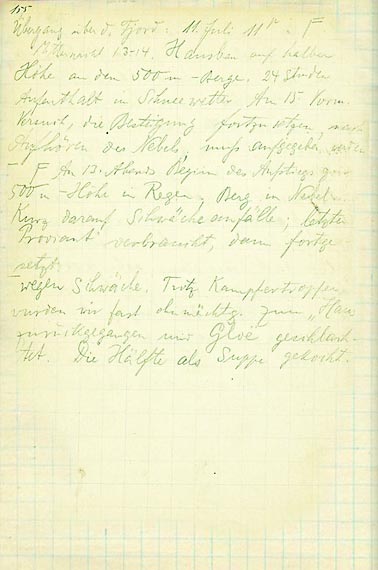 155
Übergang über d. Fjord: 11. Juli 11 F
13-14. Hausbau auf halber
Höhe an dem 500 m-Berge. 24 Stunden
Aufenthalt in Schneewetter. Am 15 Vorm.
Versuch, die Besteigung fortzusetzen, nach
Aufhören des Nebels, muß aufgegeben werden
- F Am 13. Abends Beginn des Aufstiegs
500 m-Höhe in Regen, Berg in Nebel.
Kurz darauf Schwächeanfälle; letzter
Proviant verbraucht, dann fortge
setzt
wegen Schwäche. Trotz Kampfertropfen
wurden wir fast ohnmächtig. Zum "Hau
zurückgegangen und Gloë geschlach-
tet. Die Hälfte als Suppe gekocht.